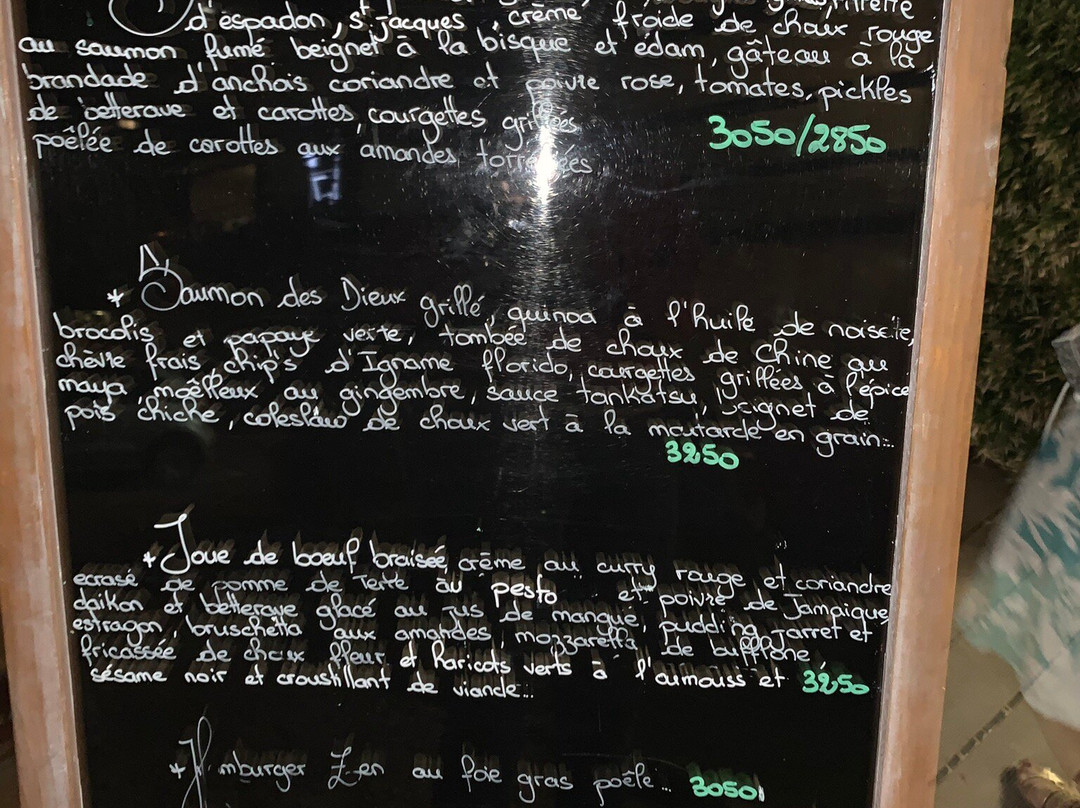 d'espadon, s^t jacques, crème froide de choux rouge
au saumon fumé beignet à la bisque et édam, gâteau à la
brandade d'anchois coriandre et poivre rose, tomates, pickles
de betterave et carottes, courgettes grillées
poêlée de carottes aux amandes torréfiées
3050/2850
* Saumon des Dieux grillé, quinoa à l'huile de noisette,
brocolis et papaye verte, tombée de choux de Chine au
chèvre frais, chips d'Igname florido, courgettes grillées à l'épice
maya, moëlleux au gingembre, sauce tankatsu, beignet de
pois chiche, coleslaw de choux vert à la moutarde en grain...
3250
* Joue de boeuf braisée, crème au curry rouge et coriandre
ecrasé de pomme de Terre au pesto et poivre de Jamaïque,
daïkon et betterave glacé au jus de mangue, pudding jarret et
estragon, bruschetta aux amandes, mozzarella de bufflone,
fricassée de choux fleur et haricots verts à l'aumouss et
sésame noir et croustillant de viande... 3250
* Hmburger Zen au foie gras poêle... 3050